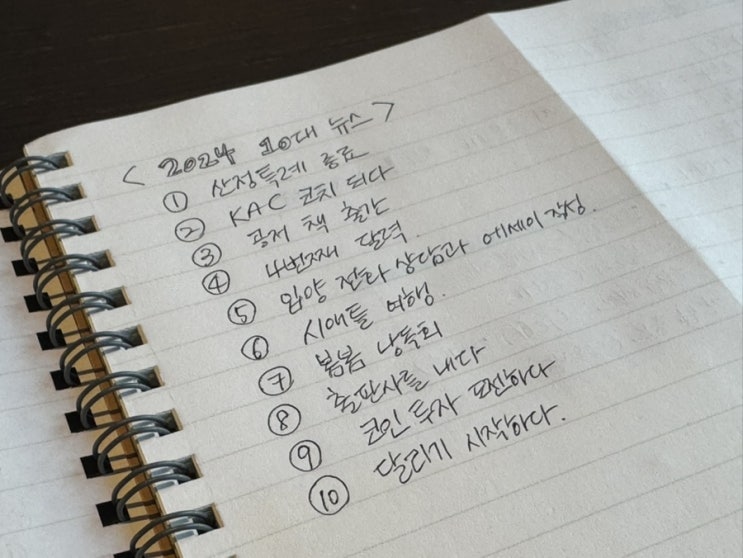 < 2024 10대 뉴스 >
① 산정특례 종료
② KAC 코치 되다
③ 공저 책 출간
④ 4번째 달력
⑤ 입양 전화 상담과 에세이 작성.
⑥ 시애틀 여행.
⑦ 봄봄 낭독회
⑧ 출판사를 내다
⑨ 코인 투자 도전하다
⑩ 달리기 시작하다.